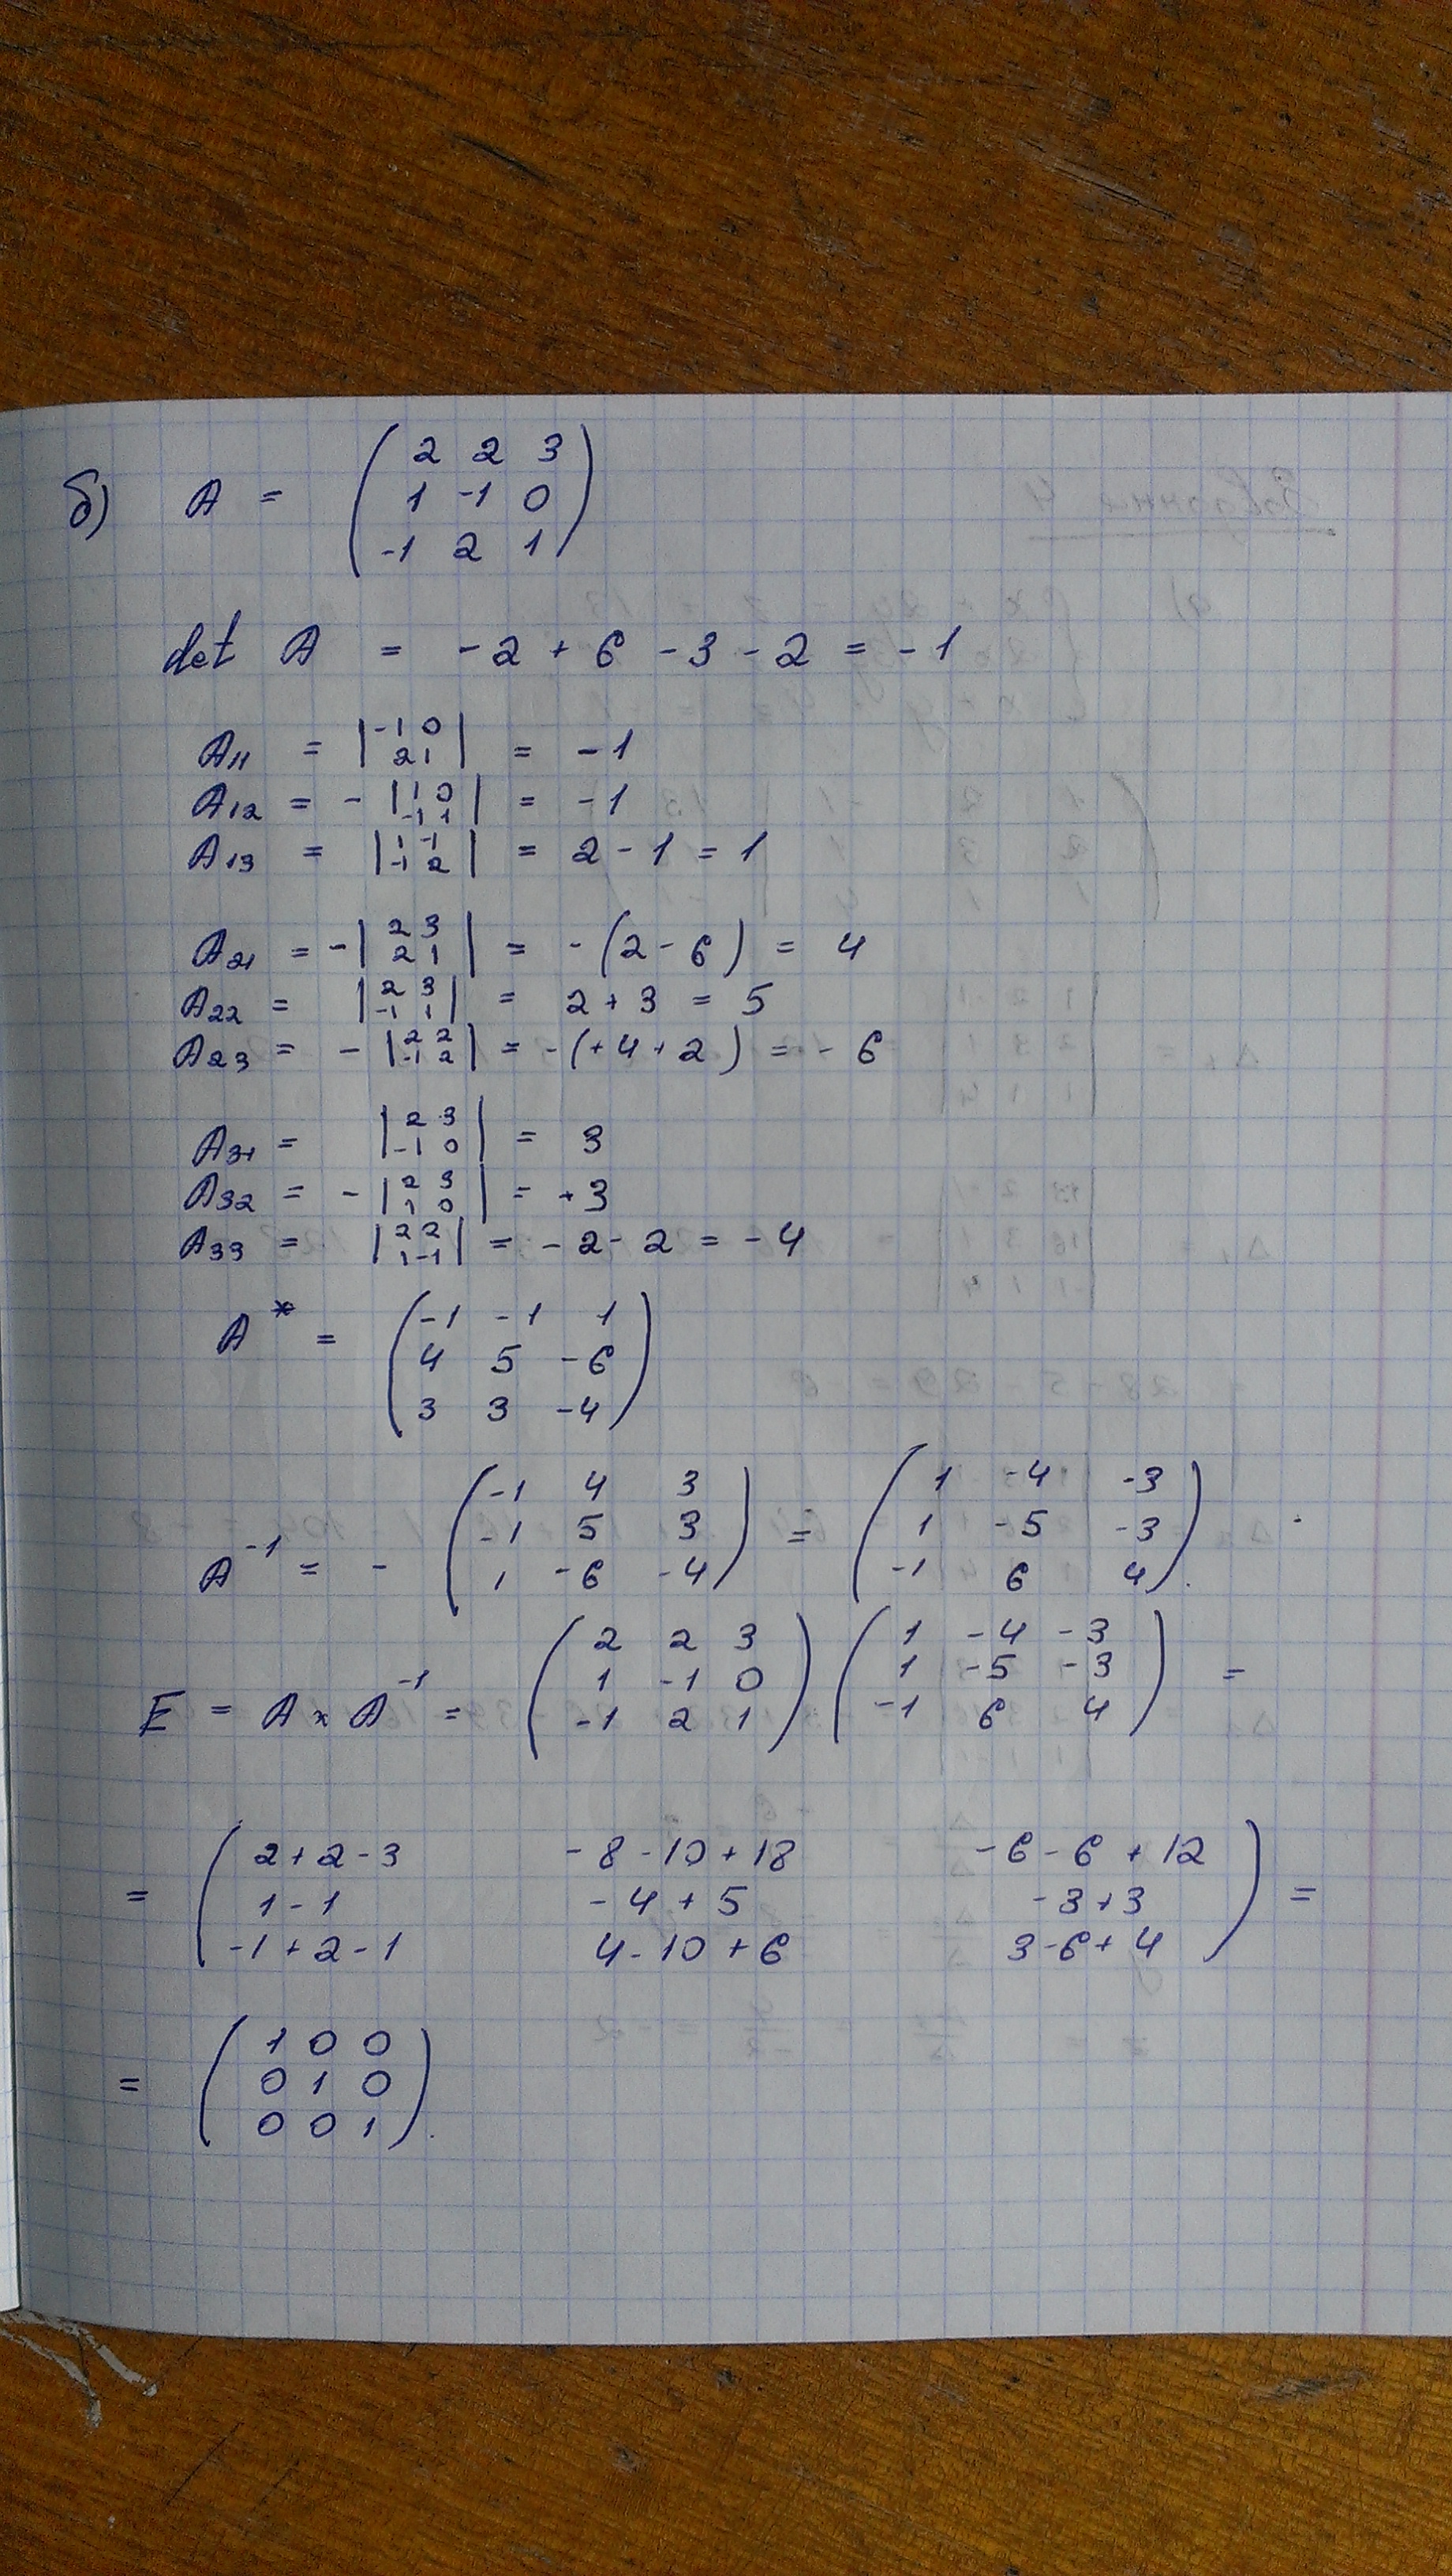 б) A = ( 2 2 3
1 -1 0
-1 2 1 )
det A = -2 + 6 - 3 - 2 = -1
A11 = | -1 0
2 1 | = -1
A12 = - | 1 0
-1 1 | = -1
A13 = | 1 -1
-1 2 | = 2 - 1 = 1
A21 = - | 2 3
2 1 | = - (2 - 6) = 4
A22 = | 2 3
-1 1 | = 2 + 3 = 5
A23 = - | 2 2
-1 2 | = - (+4 + 2) = - 6
A31 = | 2 3
-1 0 | = 3
A32 = - | 2 3
1 0 | = +3
A33 = | 2 2
1 -1 | = -2 - 2 = -4
A* = ( -1 -1 1
4 5 -6
3 3 -4 )
A-1 = - ( -1 4 3
-1 5 3
1 -6 -4 ) = ( 1 -4 -3
1 -5 -3
-1 6 4 ).
E = A × A-1 = ( 2 2 3
1 -1 0
-1 2 1 ) ( 1 -4 -3
1 -5 -3
-1 6 4 ) =
= ( 2+2-3 -8-10+18 -6-6+12
1-1 -4+5 -3+3
-1+2-1 4-10+6 3-6+4 ) =
= ( 1 0 0
0 1 0
0 0 1 ).